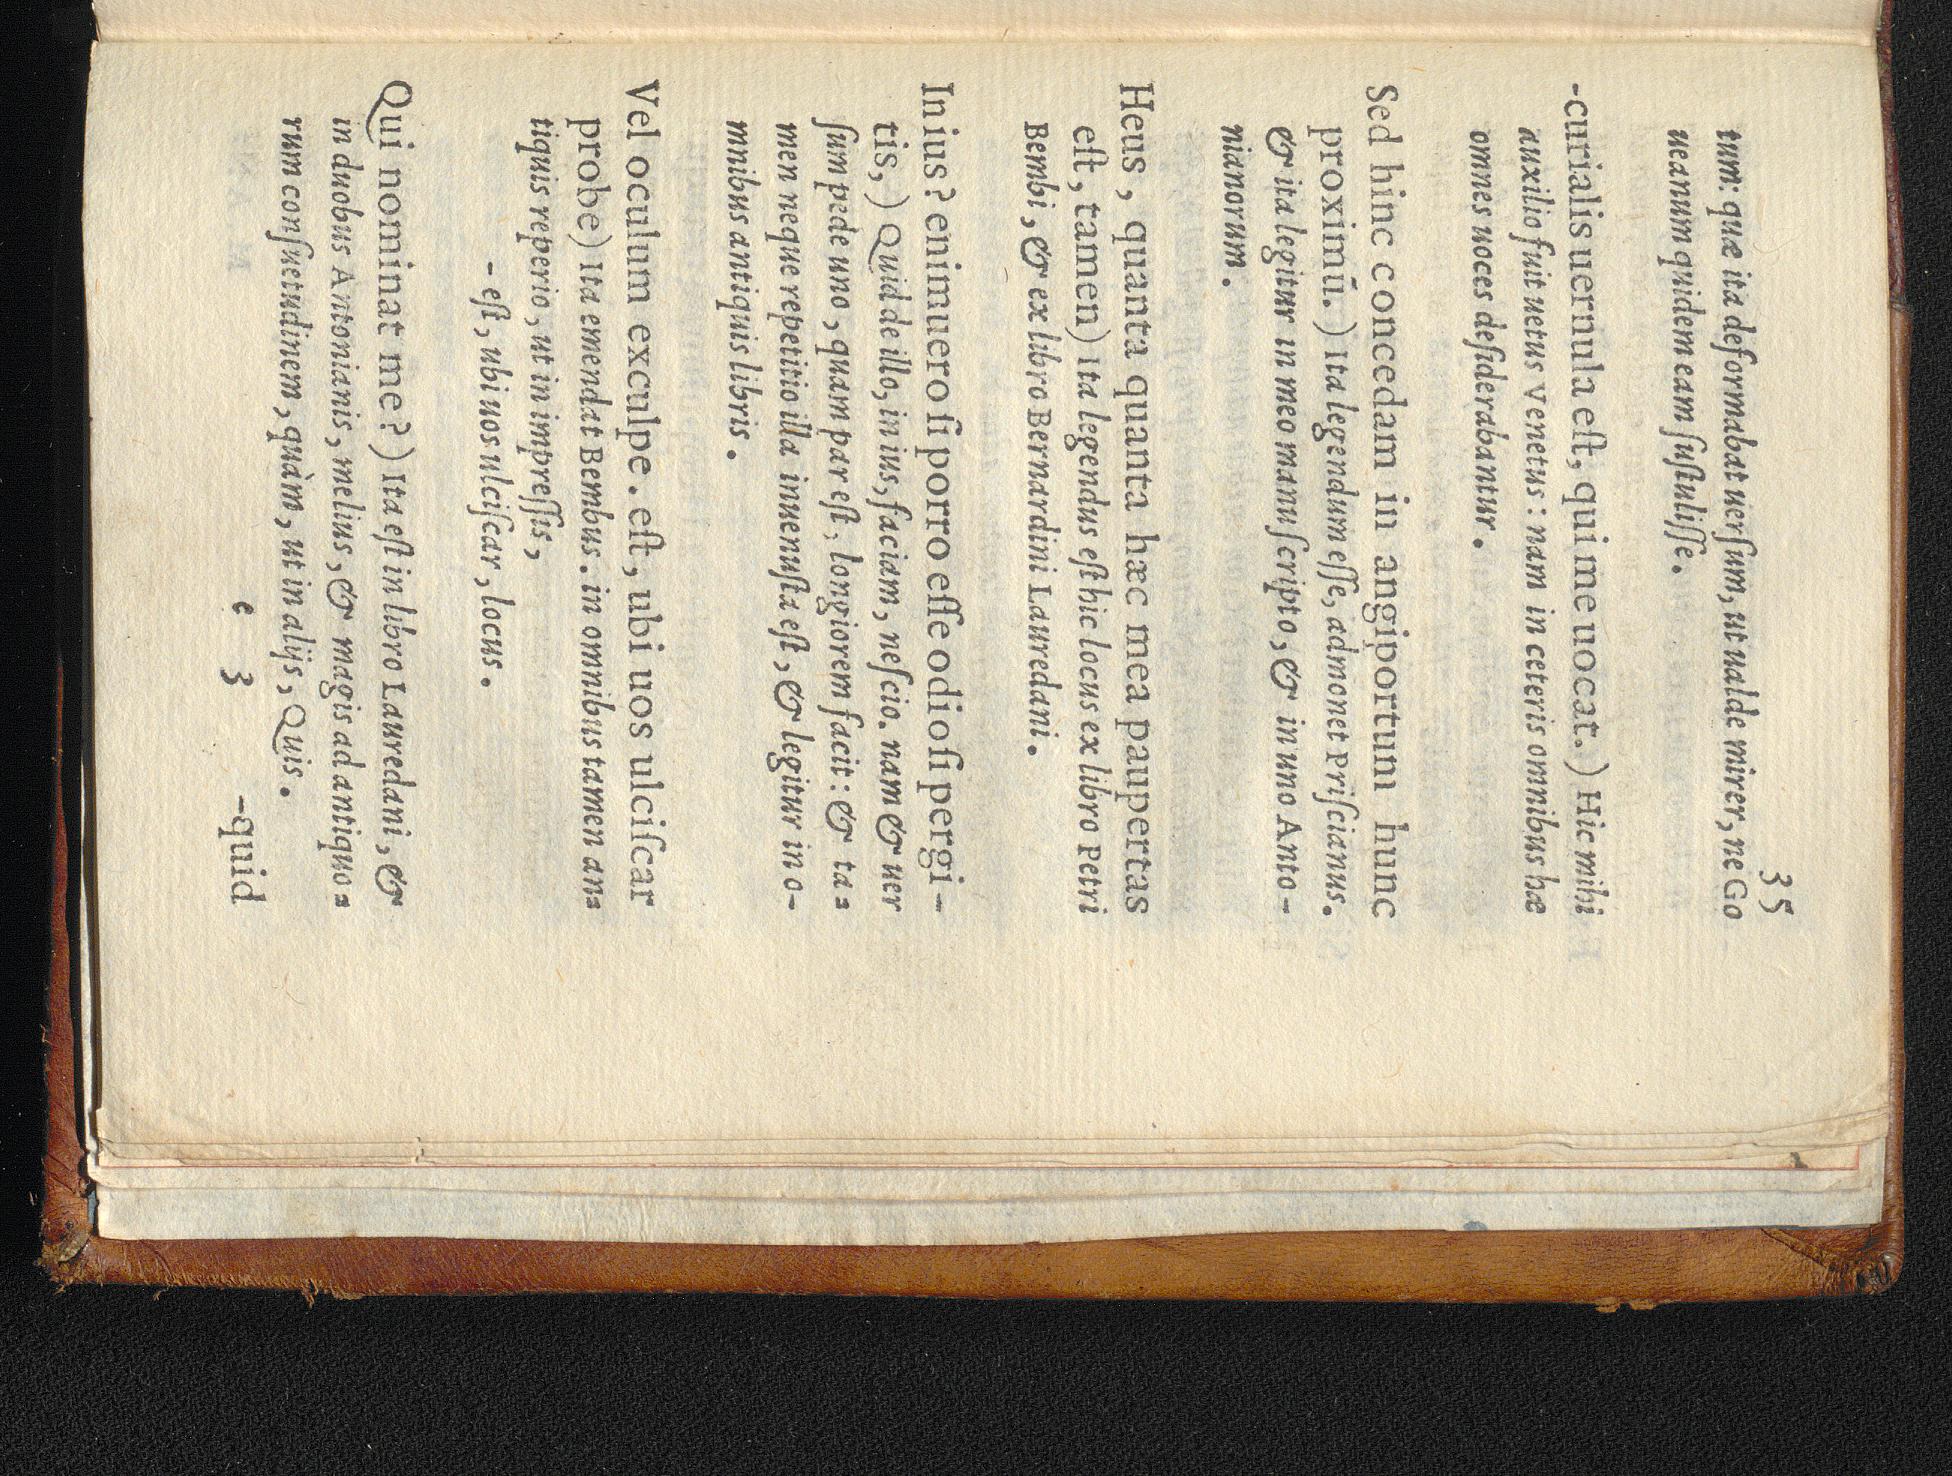 35
tum: quæ ita deformabat uerſum, ut ualde mirer, ne Go
ueanum quidem eam ſuſtuliſſe.
-curialis uernula eſt, qui me uocat.) Hic mihi
auxilio fuit uetus Venetus: nam in ceteris omnibus hæ
omnes uoces deſiderabantur.
Sed hinc concedam in angiportum hunc
proximū.) Ita legendum eſſe, admonet Priſcianus.
& ita legitur in meo manu ſcripto, & in uno Anto-
nianorum.
Heus, quanta quanta hæc mea paupertas
eſt, tamen) Ita legendus eſt hic locus ex libro Petri
Bembi, & ex libro Bernardini Lauredani.
In ius? enimuero ſi porro eſſe odioſi pergi-
tis,) Quid de illo, in ius, faciam, neſcio. nam & uer
ſum pede uno, quam par eſt, longiorem facit: & ta=
men neque repetitio illa inuenuſta eſt, & legitur in o-
mnibus antiquis libris.
Vel oculum exculpe. eſt, ubi uos ulciſcar
probe) Ita emendat Bembus. in omnibus tamen an=
tiquis reperio, ut in impreſſis,
- eſt, ubi uos ulciſcar, locus.
Qui nominat me?) Ita eſt in libro Lauredani, &
in duobus Antonianis, melius, & magis ad antiquo=
rum conſuetudinem, quàm, ut in alijs, Quis.
e 3 -quid